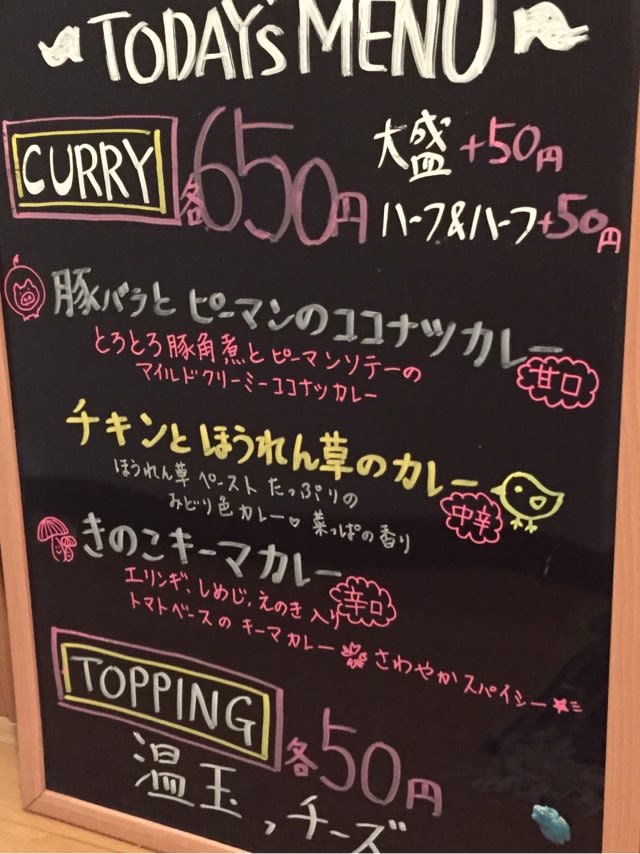 TODAY's MENU
CURRY 各650円 大盛+50円
ハーフ&ハーフ+50円
豚バラとピーマンのココナツカレー
とろとろ豚角煮とピーマンソテーの
マイルドクリーミーココナツカレー
甘口
チキンとほうれん草のカレー
ほうれん草ペーストたっぷりの
みどり色カレー♡ 葉っぱの香り
中辛
きのこキーマカレー
エリンギ、しめじ、えのき入り
トマトベースのキーマカレー さわやかスパイシー
辛口
TOPPING 各50円
温玉,チーズ